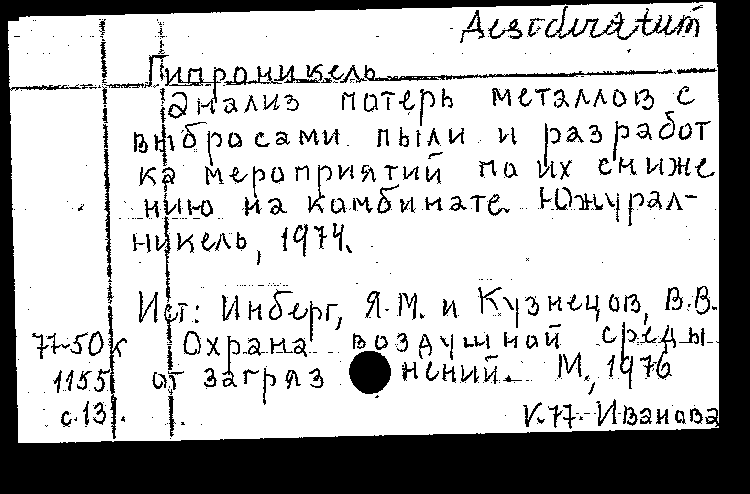 Desideratum
Гипроникель
Анализ потерь металлов с
выбросами пыли и разработ
ка мероприятий по их сниже
нию на комбинате Южурал-
никель, 1974.
Ист: Инберг, Я.М. и Кузнецов, В.В.
77-50к Охрана воздушной среды
1155 от загряз нений. М., 1976
с.131. V.77. Иванова